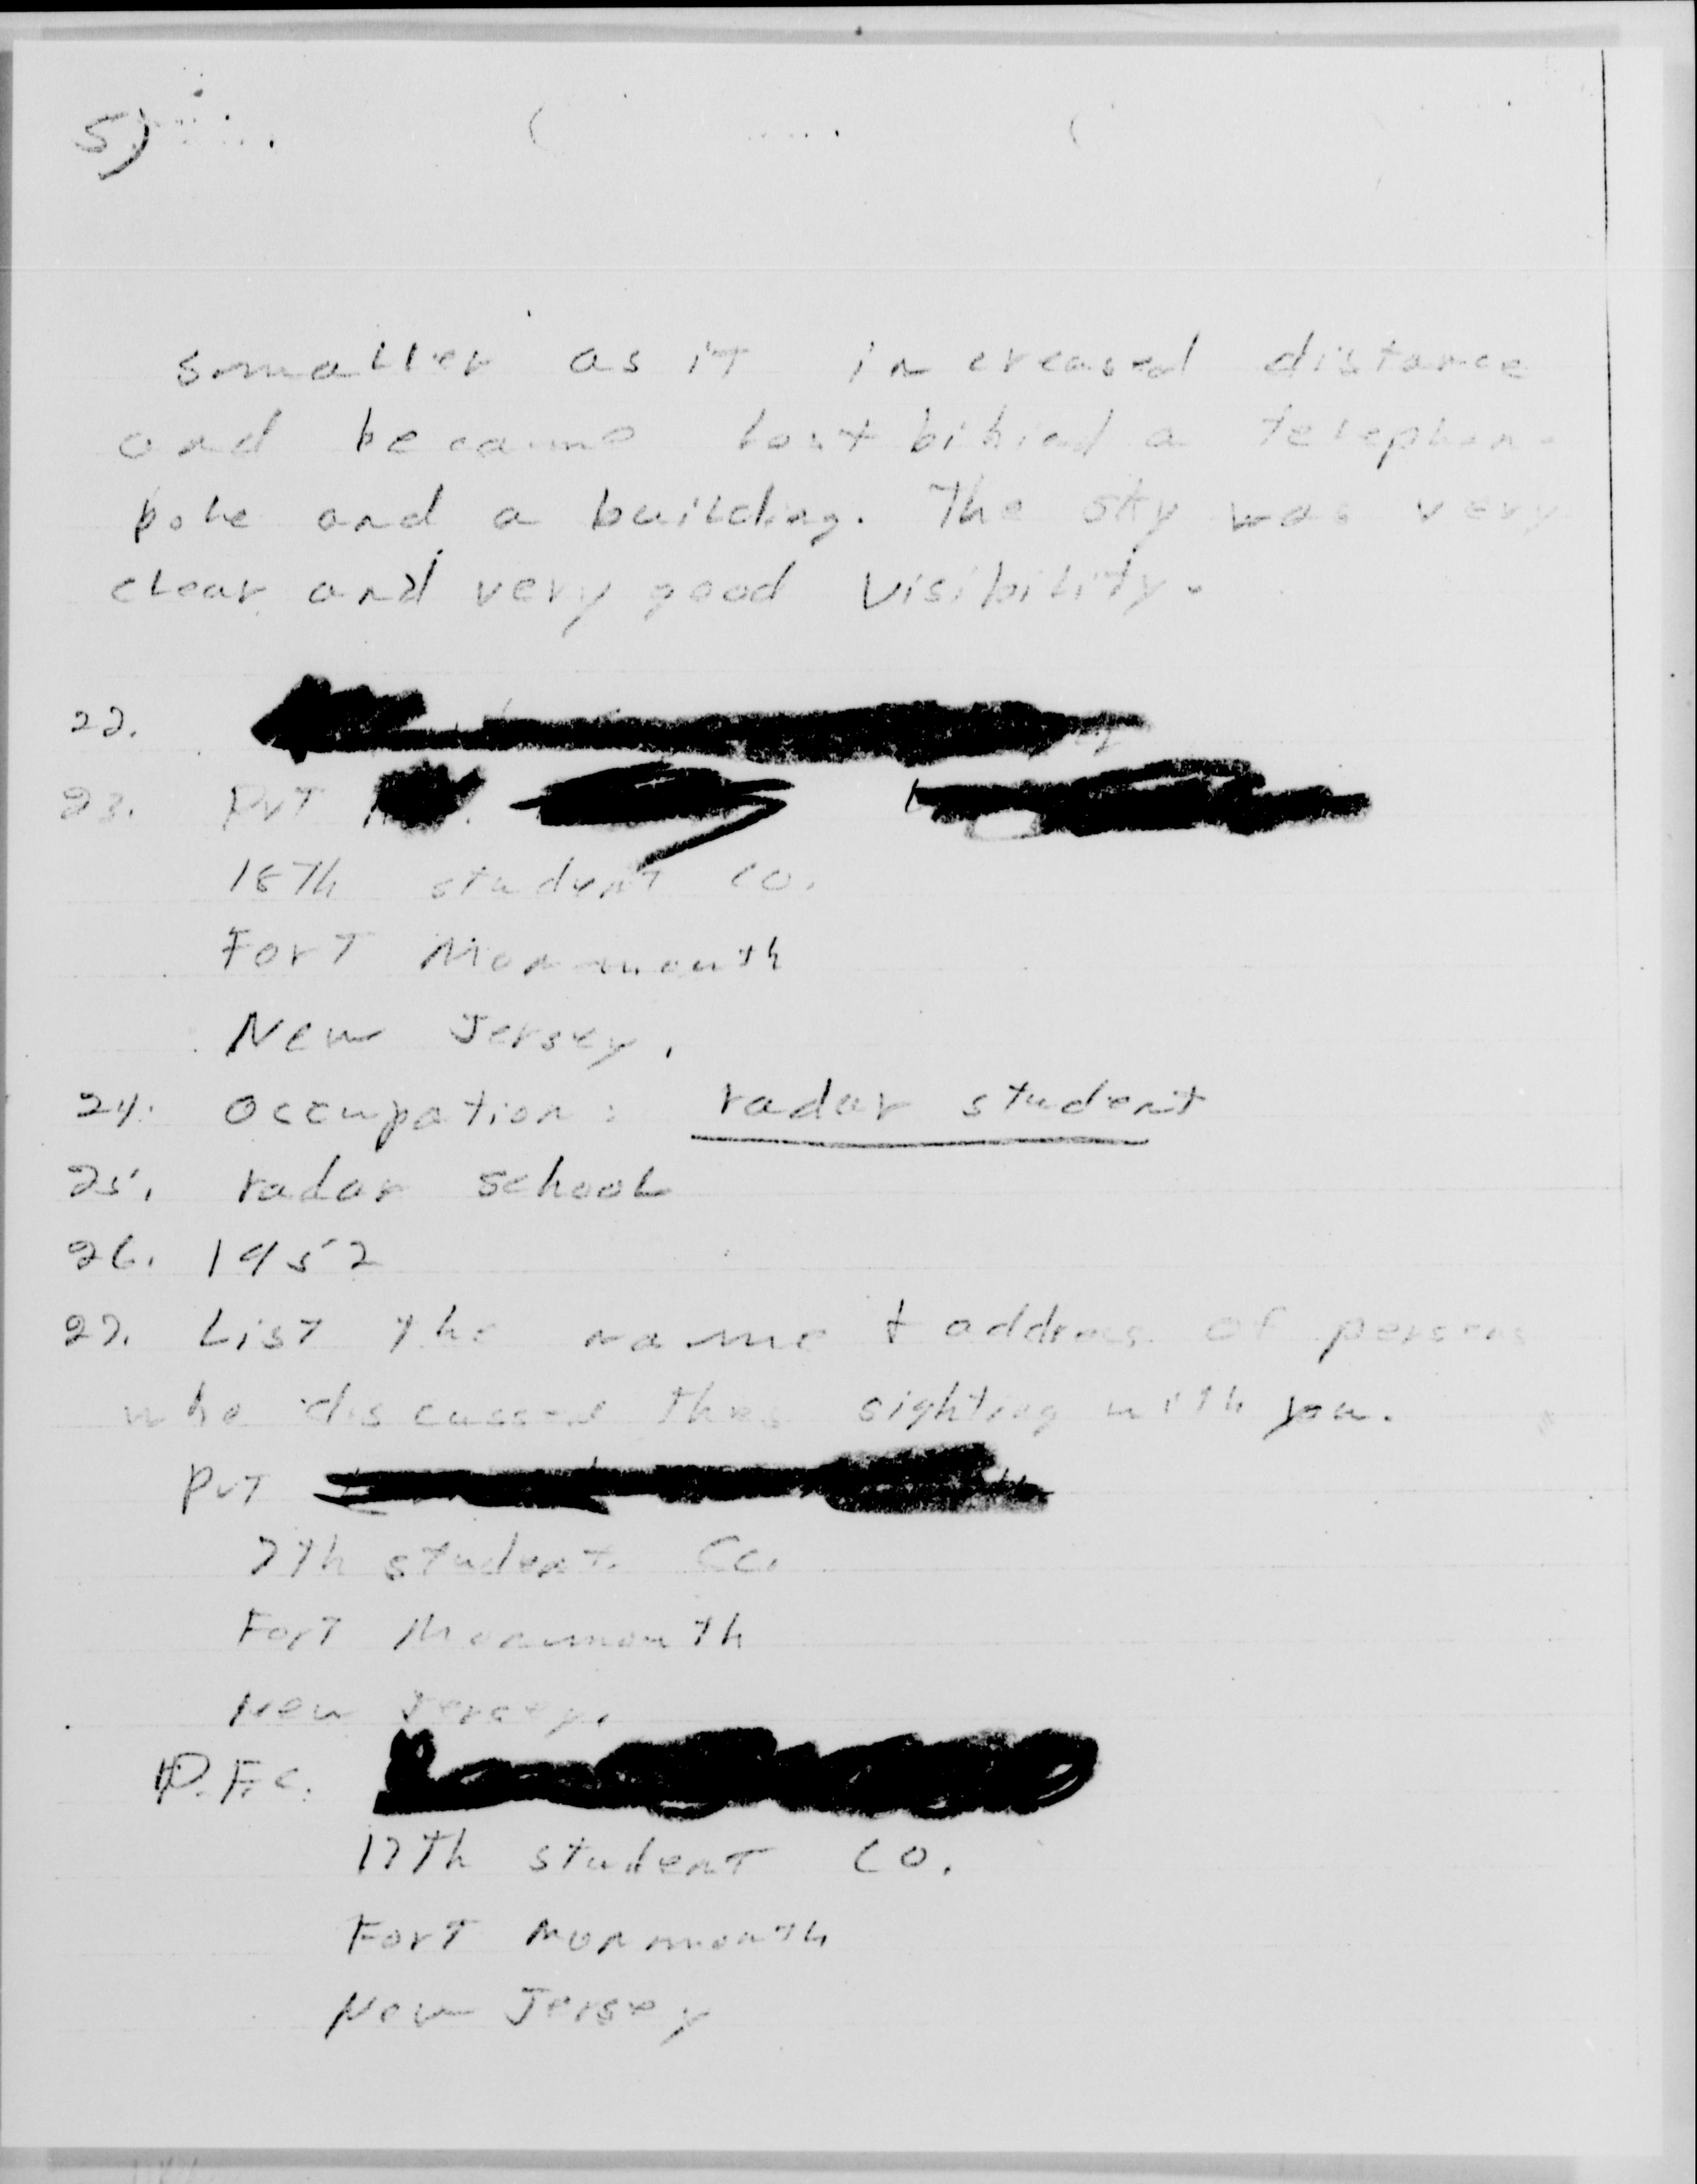 5)
smaller as it increased distance
and became lost bihind a telephone
pole and a building. The sky was very
clear and very good visibility.
22.
23. Pvt
18Th student co.
Fort Monmouth
New Jersey.
24. Occupation: radar student
25. radar school
26. 1952
27. List the name + address of persons
who discussed this sighting with you.
Pvt
7th student Co.
Fort Monmouth
New Jersey.
P.F.C.
17Th student co.
Fort Monmouth
New Jersey